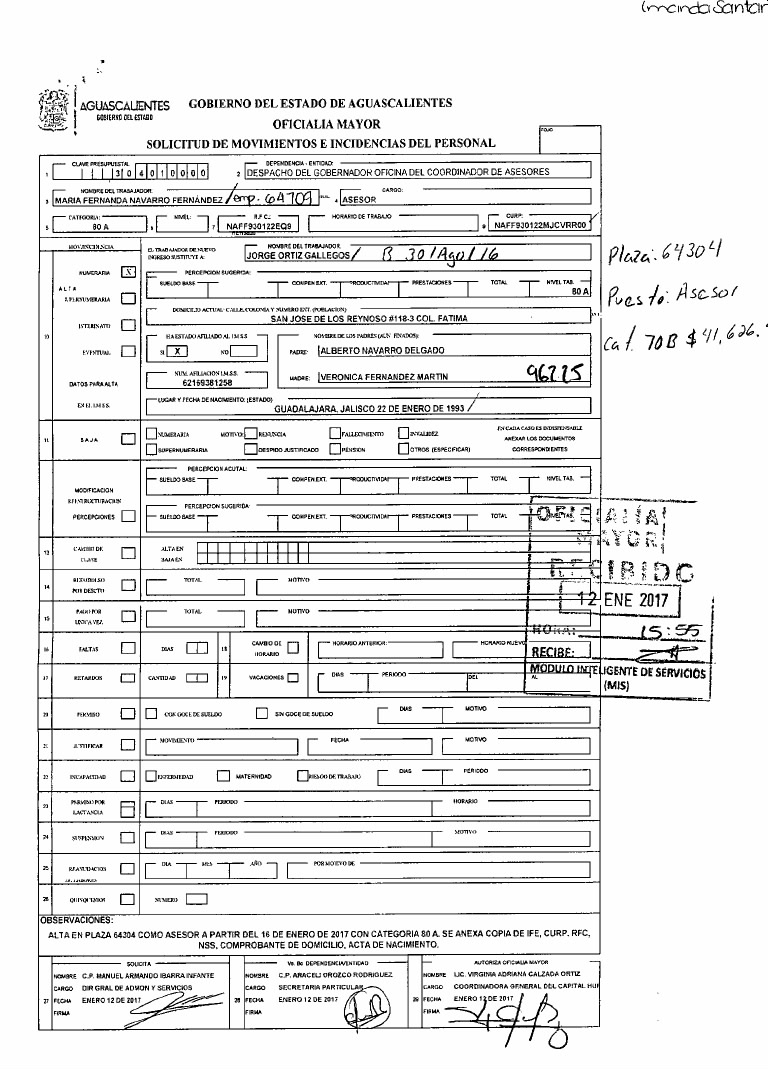 AGUASCALIENTES
GOBIERNO DEL ESTADO
GOBIERNO DEL ESTADO DE AGUASCALIENTES
OFICIALIA MAYOR
SOLICITUD DE MOVIMIENTOS E INCIDENCIAS DEL PERSONAL
FOLIO
1 CLAVE PRESUPUESTAL 3 0 4 0 1 0 0 0 0
2 DEPENDENCIA - ENTIDAD: DESPACHO DEL GOBERNADOR OFICINA DEL COORDINADOR DE ASESORES
3 NOMBRE DEL TRABAJADOR: MARIA FERNANDA NAVARRO FERNÁNDEZ / emp. 64709
4 CARGO: ASESOR
5 CATEGORIA: 80 A
6 NIVEL:
7 R.F.C.: NAFF930122EQ9
HORARIO DE TRABAJO
9 CURP: NAFF930122MJCVRR00
Plaza: 64304
Puesto: Asesor
Cat. 70B $ 41,626.
EL TRABAJADOR DE NUEVO INGRESO SUSTITUYE A:
NOMBRE DEL TRABAJADOR
JORGE ORTIZ GALLEGOS / B 30/Ago/16
10
ALTA
NUMERARIA X
SUPERNUMERARIA
INTERINATO
EVENTUAL
DATOS PARA ALTA
EN EL I.M.S.S.
PERCEPCION SUGERIDA:
SUELDO BASE COMPEN EXT. PRODUCTIVIDAD PRESTACIONES TOTAL NIVEL TAB.
80 A
DOMICILIO ACTUAL: CALLE, COLONIA Y NUMERO EXT. (POBLACION)
SAN JOSE DE LOS REYNOSO #118-3 COL. FATIMA
HA ESTADO AFILIADO AL I.M.S.S
SI X NO
NOMBRE DE LOS PADRES (AUN FINADOS):
PADRE: ALBERTO NAVARRO DELGADO
NUM. AFILIACION I.M.S.S.
62159381258
MADRE: VERONICA FERNANDEZ MARTIN 96225
LUGAR Y FECHA DE NACIMIENTO: (ESTADO)
GUADALAJARA, JALISCO 22 DE ENERO DE 1993 /
11 BAJA
NUMERARIA MOTIVO: RENUNCIA FALLECIMIENTO INVALIDEZ
SUPERNUMERARIA DESPIDO JUSTIFICADO PENSION OTROS (ESPECIFICAR)
EN CADA CASO ES INDISPENSABLE
ANEXAR LOS DOCUMENTOS
CORRESPONDIENTES
MODIFICACION
REESTRUCTURACION
PERCEPCIONES
PERCEPCION ACUTAL:
SUELDO BASE COMPEN EXT. PRODUCTIVIDAD PRESTACIONES TOTAL NIVEL TAB.
PERCEPCION SUGERIDA:
SUELDO BASE COMPEN EXT. PRODUCTIVIDAD PRESTACIONES TOTAL NIVEL TAB.
13 CAMBIO DE CLAVE
ALTA EN
BAJA EN
14 REEMBOLSO POR DESCTO TOTAL MOTIVO
15 PAGO POR UNICA VEZ TOTAL MOTIVO
OFICIALIA
MAYOR
RECIBIDO
12 ENE 2017
HORA: 15:55
RECIBE:
MODULO INTELIGENTE DE SERVICIOS
(MIS)
16 FALTAS DIAS 18 CAMBIO DE HORARIO HORARIO ANTERIOR: HORARIO NUEVO
17 RETARDOS CANTIDAD 19 VACACIONES DIAS PERIODO DEL AL
20 PERMISO CON GOCE DE SUELDO SIN GOCE DE SUELDO DIAS MOTIVO
21 JUSTIFICAR MOVIMIENTO FECHA MOTIVO
22 INCAPACIDAD ENFERMEDAD MATERNIDAD RIESGO DE TRABAJO DIAS PERIODO
23 PERMISO POR LACTANCIA DIAS PERIODO HORARIO
24 SUSPENSION DIAS PERIODO MOTIVO
25 REANUDACION DE LABORES DIA MES AÑO POR MOTIVO DE
26 QUINQUENIOS NUMERO
OBSERVACIONES:
ALTA EN PLAZA 64304 COMO ASESOR A PARTIR DEL 16 DE ENERO DE 2017 CON CATEGORIA 80 A. SE ANEXA COPIA DE IFE, CURP. RFC,
NSS, COMPROBANTE DE DOMICILIO, ACTA DE NACIMIENTO.
27 SOLICITA
NOMBRE C.P. MANUEL ARMANDO IBARRA INFANTE
CARGO DIR GRAL DE ADMON Y SERVICIOS
FECHA ENERO 12 DE 2017
FIRMA
28 Vo. Bo DEPENDENCIA/ENTIDAD
NOMBRE C.P. ARACELI OROZCO RODRIGUEZ
CARGO SECRETARIA PARTICULAR
FECHA ENERO 12 DE 2017
FIRMA
29 AUTORIZA OFICIALIA MAYOR
NOMBRE LIC. VIRGINIA ADRIANA CALZADA ORTIZ
CARGO COORDINADORA GENERAL DEL CAPITAL HU
FECHA ENERO 12 DE 2017
FIRMA